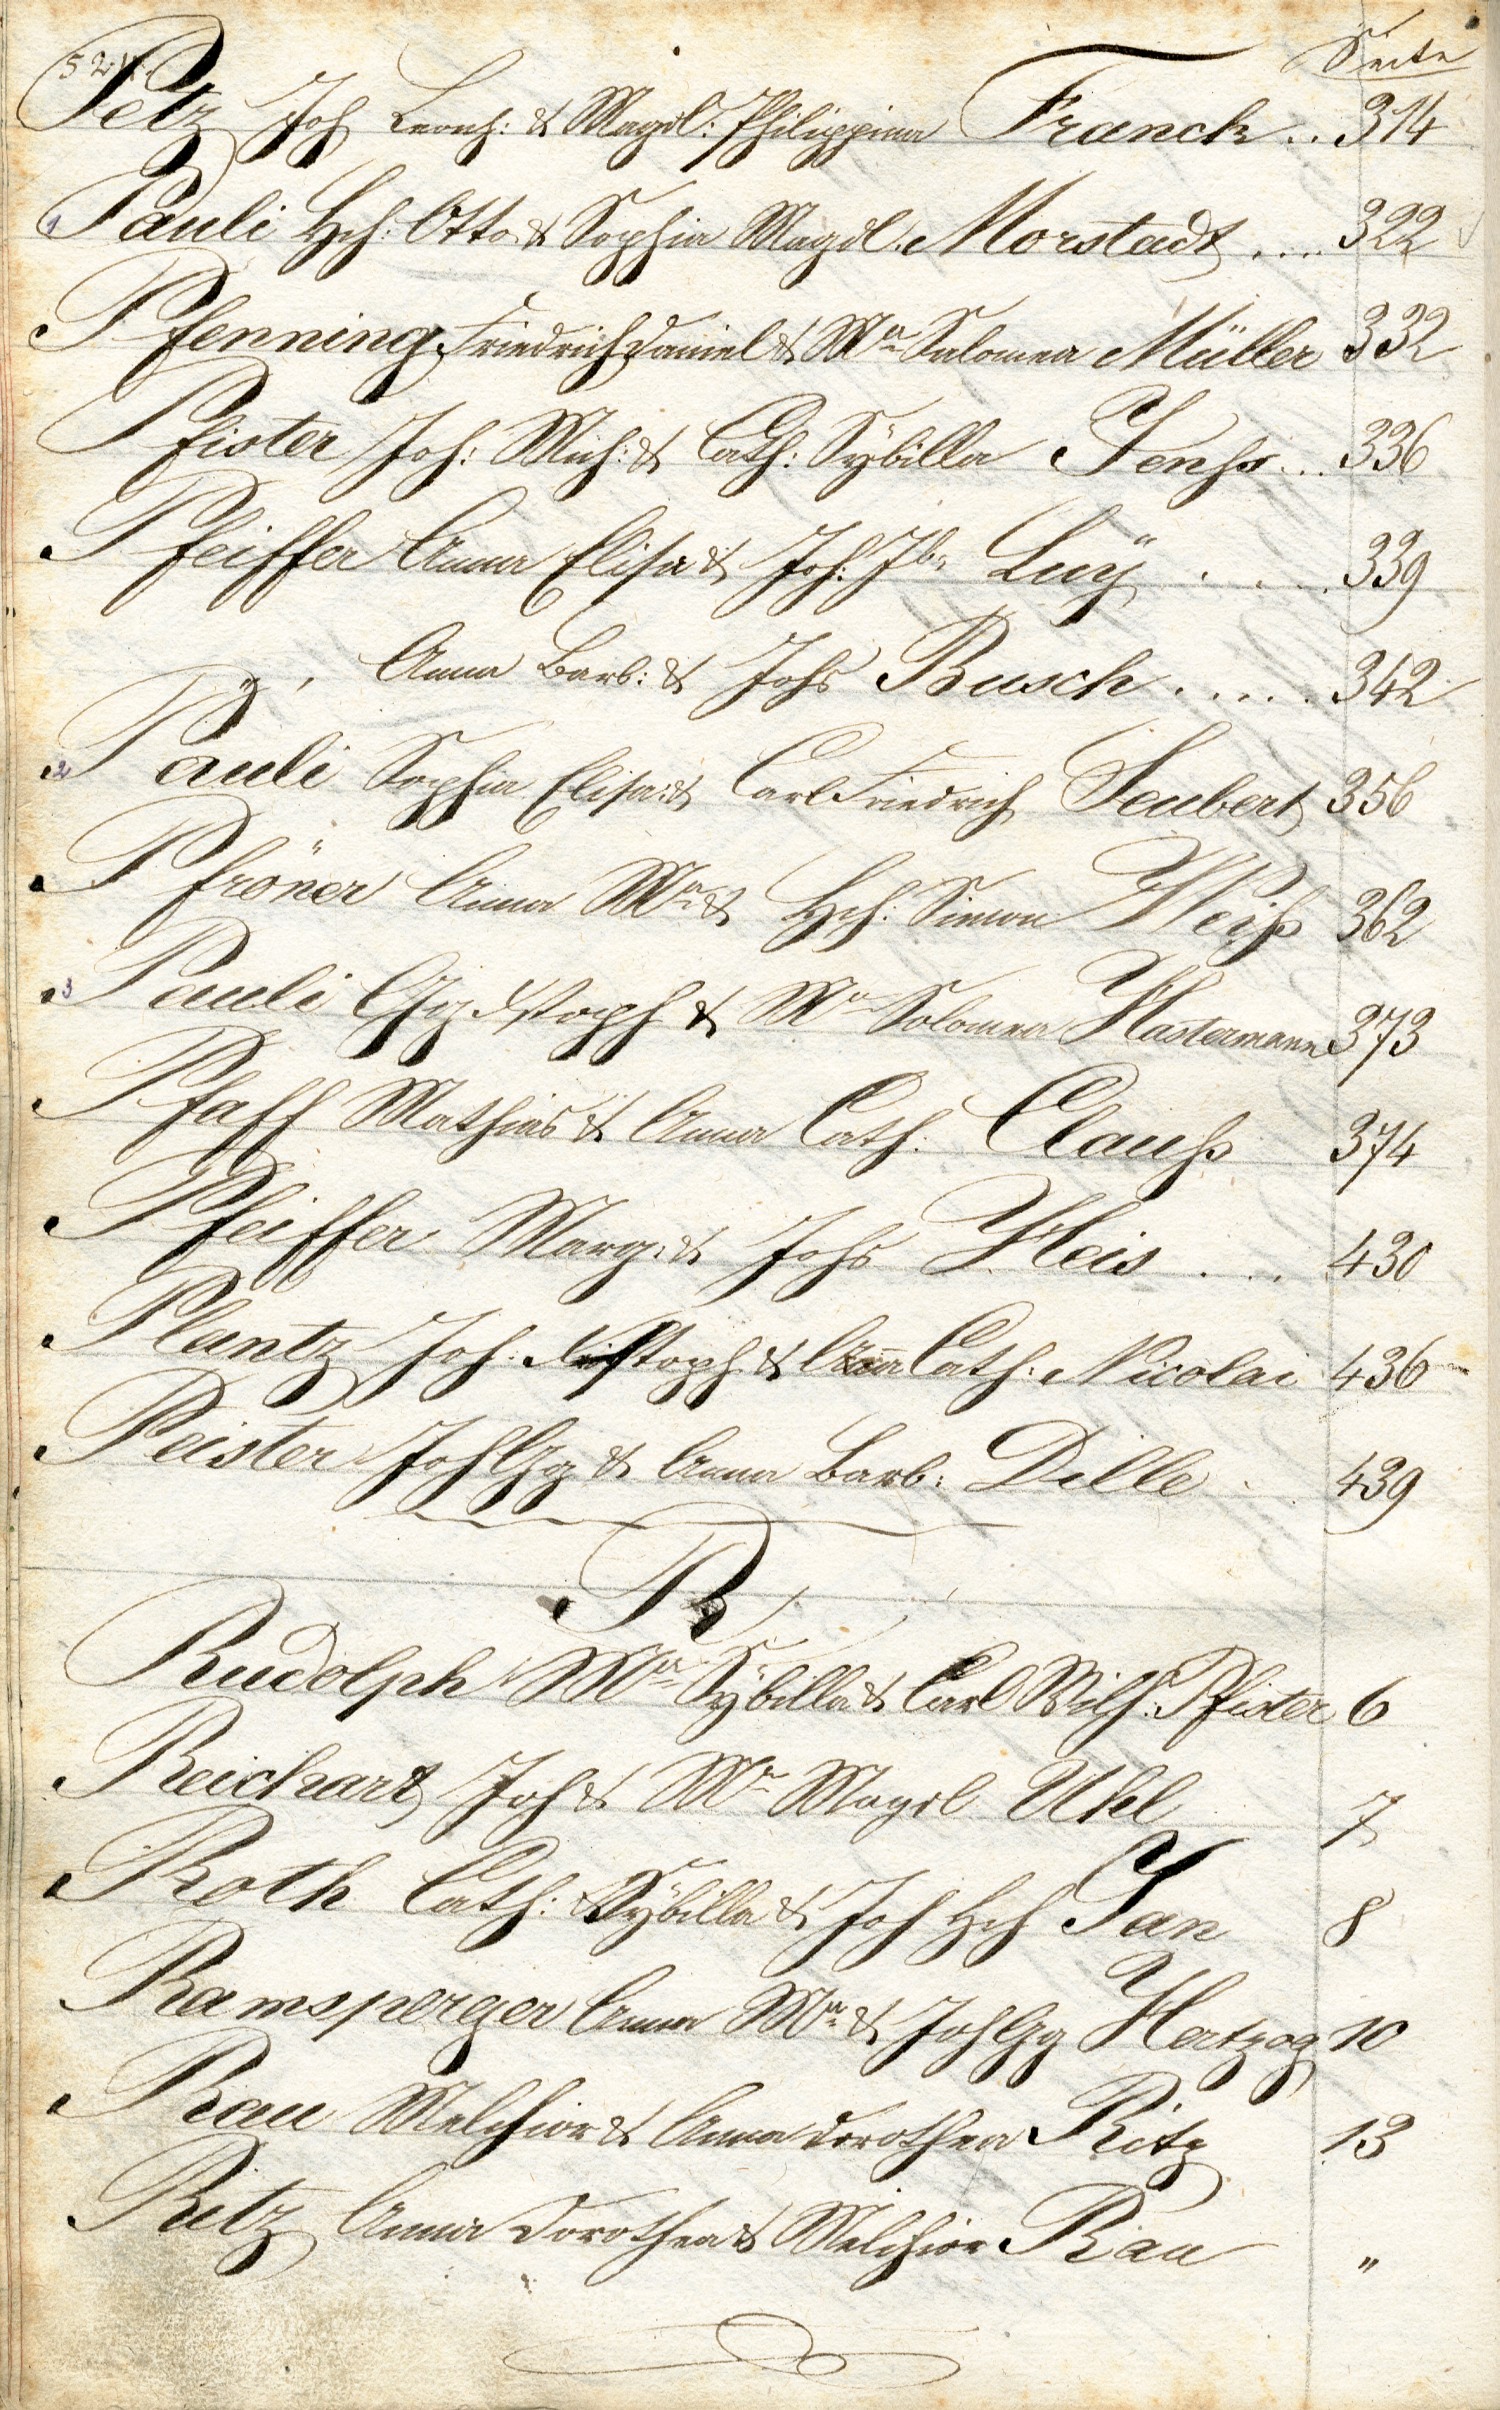 Seite
524.
Petz Joh Leonh: & Magd: Philippina Franck .. 314
1 Pauli Hch: Otto & Sophia Magd. Morstadt .... 322
Pfenning Friedrich Daniel & Ma Salomea Müller 332
Pfister Joh: Mich: & Cath: Sÿbilla Jenss ... 336
Pfeiffer Anna Elisa & Joh: Jb: Luÿ .... 339
" , Anna Barb: & Johs Busch ..... 342
2 Pauli Sophia Elisa & Carl Friedrich Seubert 356
Pfröner Anna Ma & Hch: Simon Weiß 362
3 Pauli Gg Xstoph & Ma Salomea Hastermann 373
Pfaff Mathias & Anna Cath: Clauss 374
Pfeiffer Marg: & Johs Heis .... 430
Plantz Joh: Xstoph & Anna Cath: Nicolai 436
Peister Joh Gg & Anna Barb: Dille . 439
R
Rudolph Ma Sÿbilla & Carl Wilh: Pfister 6
Reichart Joh & Ma Magd Uhl 7
Roth Cath: Sÿbilla & Joh Hch Jan 8
Ramsperger Anna Ma & Joh Gg Hertzog 10
Rau Melchior & Anna Dorothea Ritz 13
Ritz Anna Dorothea & Melchior Rau "